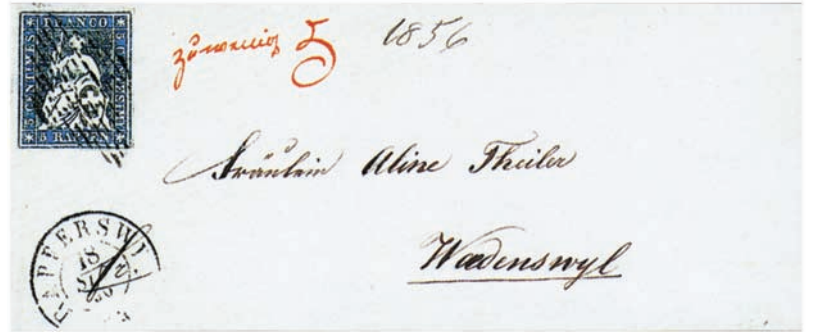 FRANCO
5 CENTIMES
5 RAPPEN
zu wenig 5
1856
Fräulein Aline Theiler
Wædenswyl
RAPPERSWYL
18